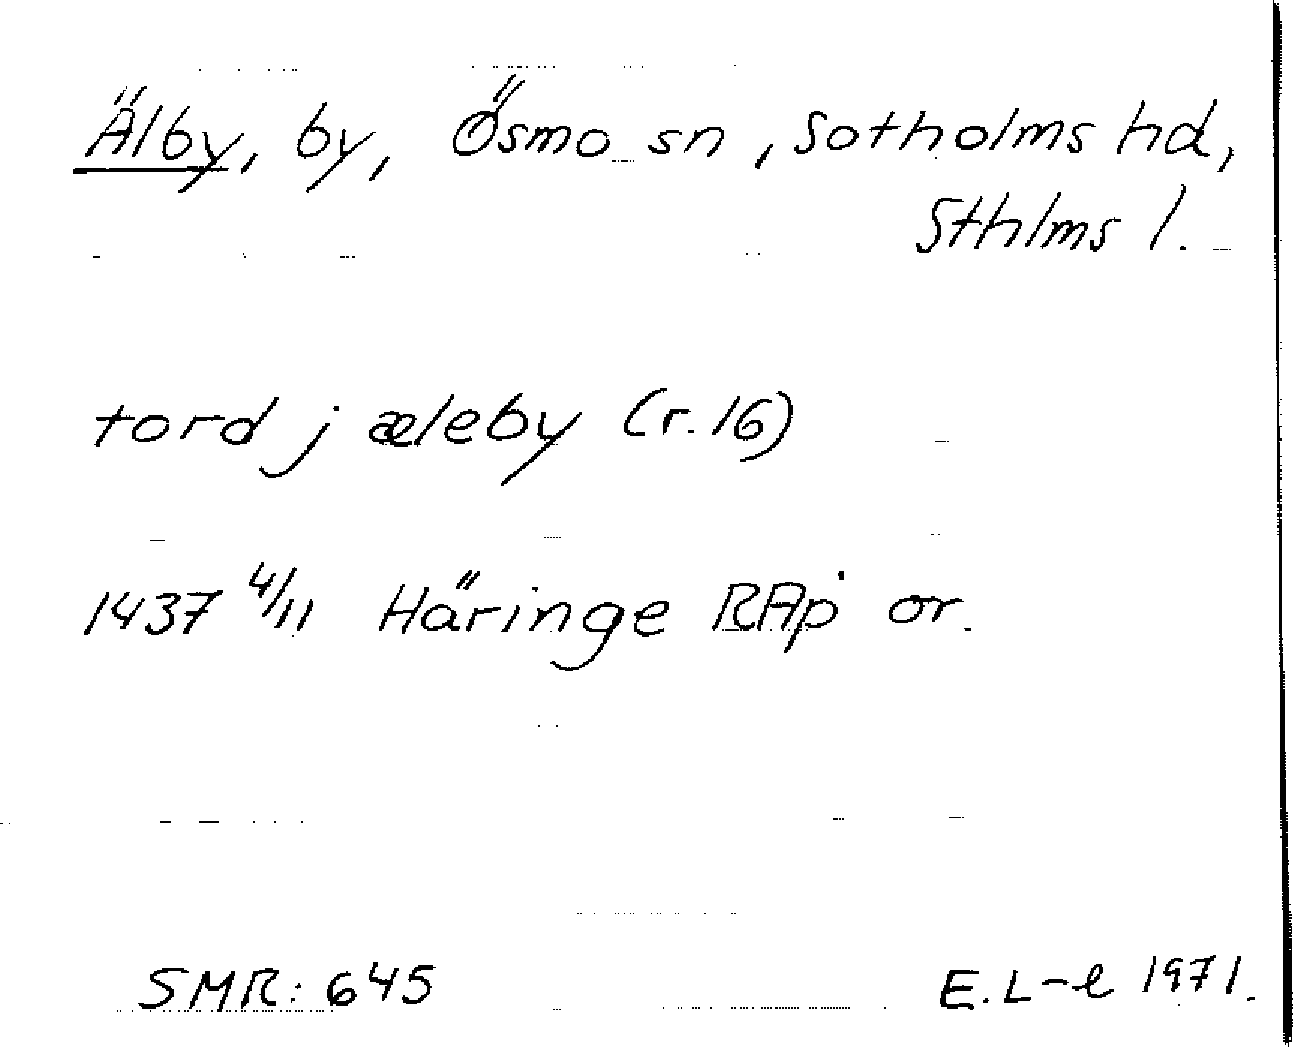 Älby, by, Ösmo sn, Sotholms hd,
Sthlms l.
tord j æleby (r. 16)
1437 4/11 Häringe RAp or.
SMR: 645
E. L-e 1971.